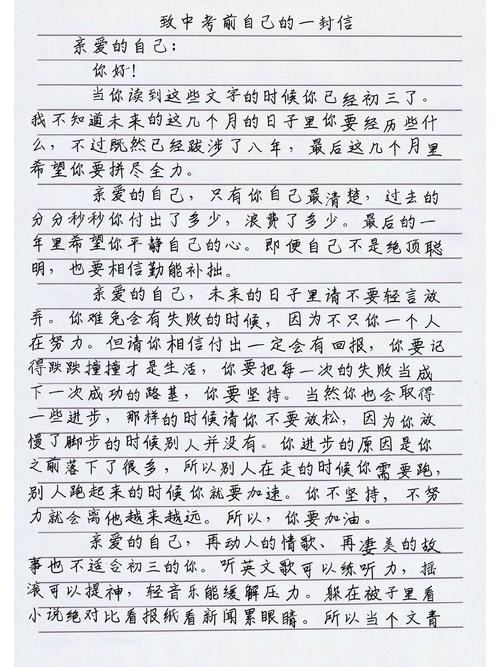 致中考前自己的一封信
亲爱的自己：
你好！
当你读到这些文字的时候你已经初三了。
我不知道未来的这几个月的日子里你要经历些什
么，不过既然已经跋涉了八年，最后这几个月里
希望你要拼尽全力。
亲爱的自己，只有你自己最清楚，过去的
分分秒秒你付出了多少，浪费了多少。最后的一
年里希望你平静自己的心。即便自己不是绝顶聪
明，也要相信勤能补拙。
亲爱的自己，未来的日子里请不要轻言放
弃。你难免会有失败的时候，因为不只你一个人
在努力。但请你相信付出一定会有回报，你要记
得跌跌撞撞才是生活，你要把每一次的失败当成
下一次成功的路基，你要坚持。当然你也会取得
一些进步，那样的时候请你不要放松，因为你放
慢了脚步的时候别人并没有。你进步的原因是你
之前落下了很多，所以别人在走的时候你需要跑，
别人跑起来的时候你就要加速。你不坚持，不努
力就会离他越来越远。所以，你要加油。
亲爱的自己，再动人的情歌、再凄美的故
事也不适合初三的你。听英文歌可以练听力，摇
滚可以提神，轻音乐能缓解压力。躲在被子里看
小说绝对比看报纸看新闻累眼睛。所以当个文青